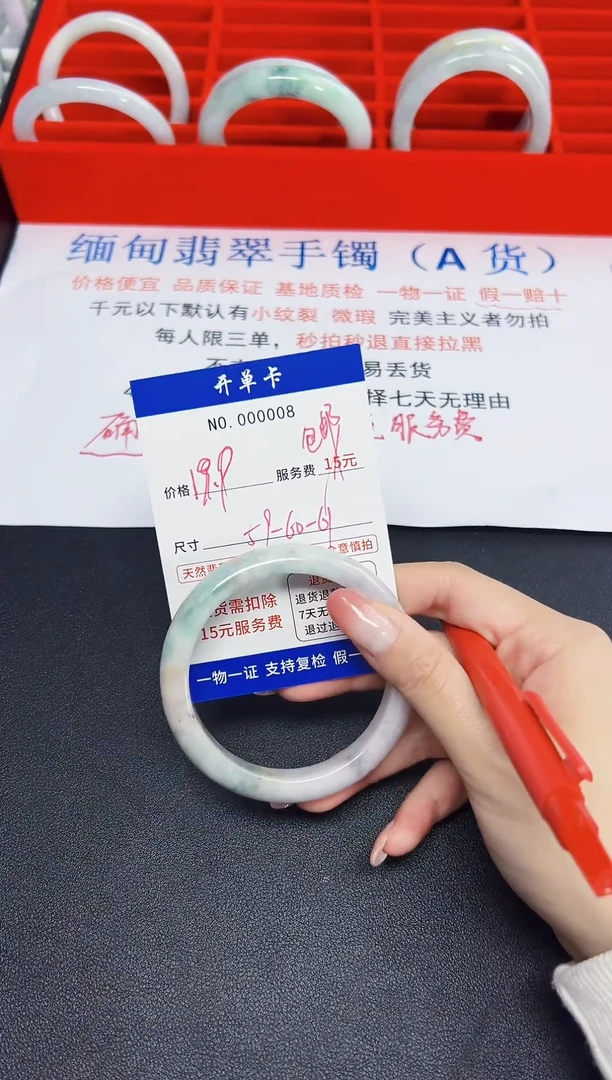 缅甸翡翠手镯（A 货）
价格便宜 品质保证 基地质检 一物一证 假一赔十
千元以下默认有小纹裂 微瑕 完美主义者勿拍
每人限三单，秒拍秒退直接拉黑
易丢货
择七天无理由
服务费
开单卡
NO. 000008
包邮
价格 服务费 15元
尺寸 59-60-61
天然翡 意慎拍
货需扣除
15元服务费
退货
7天无
退过
一物一证 支持复检 假一